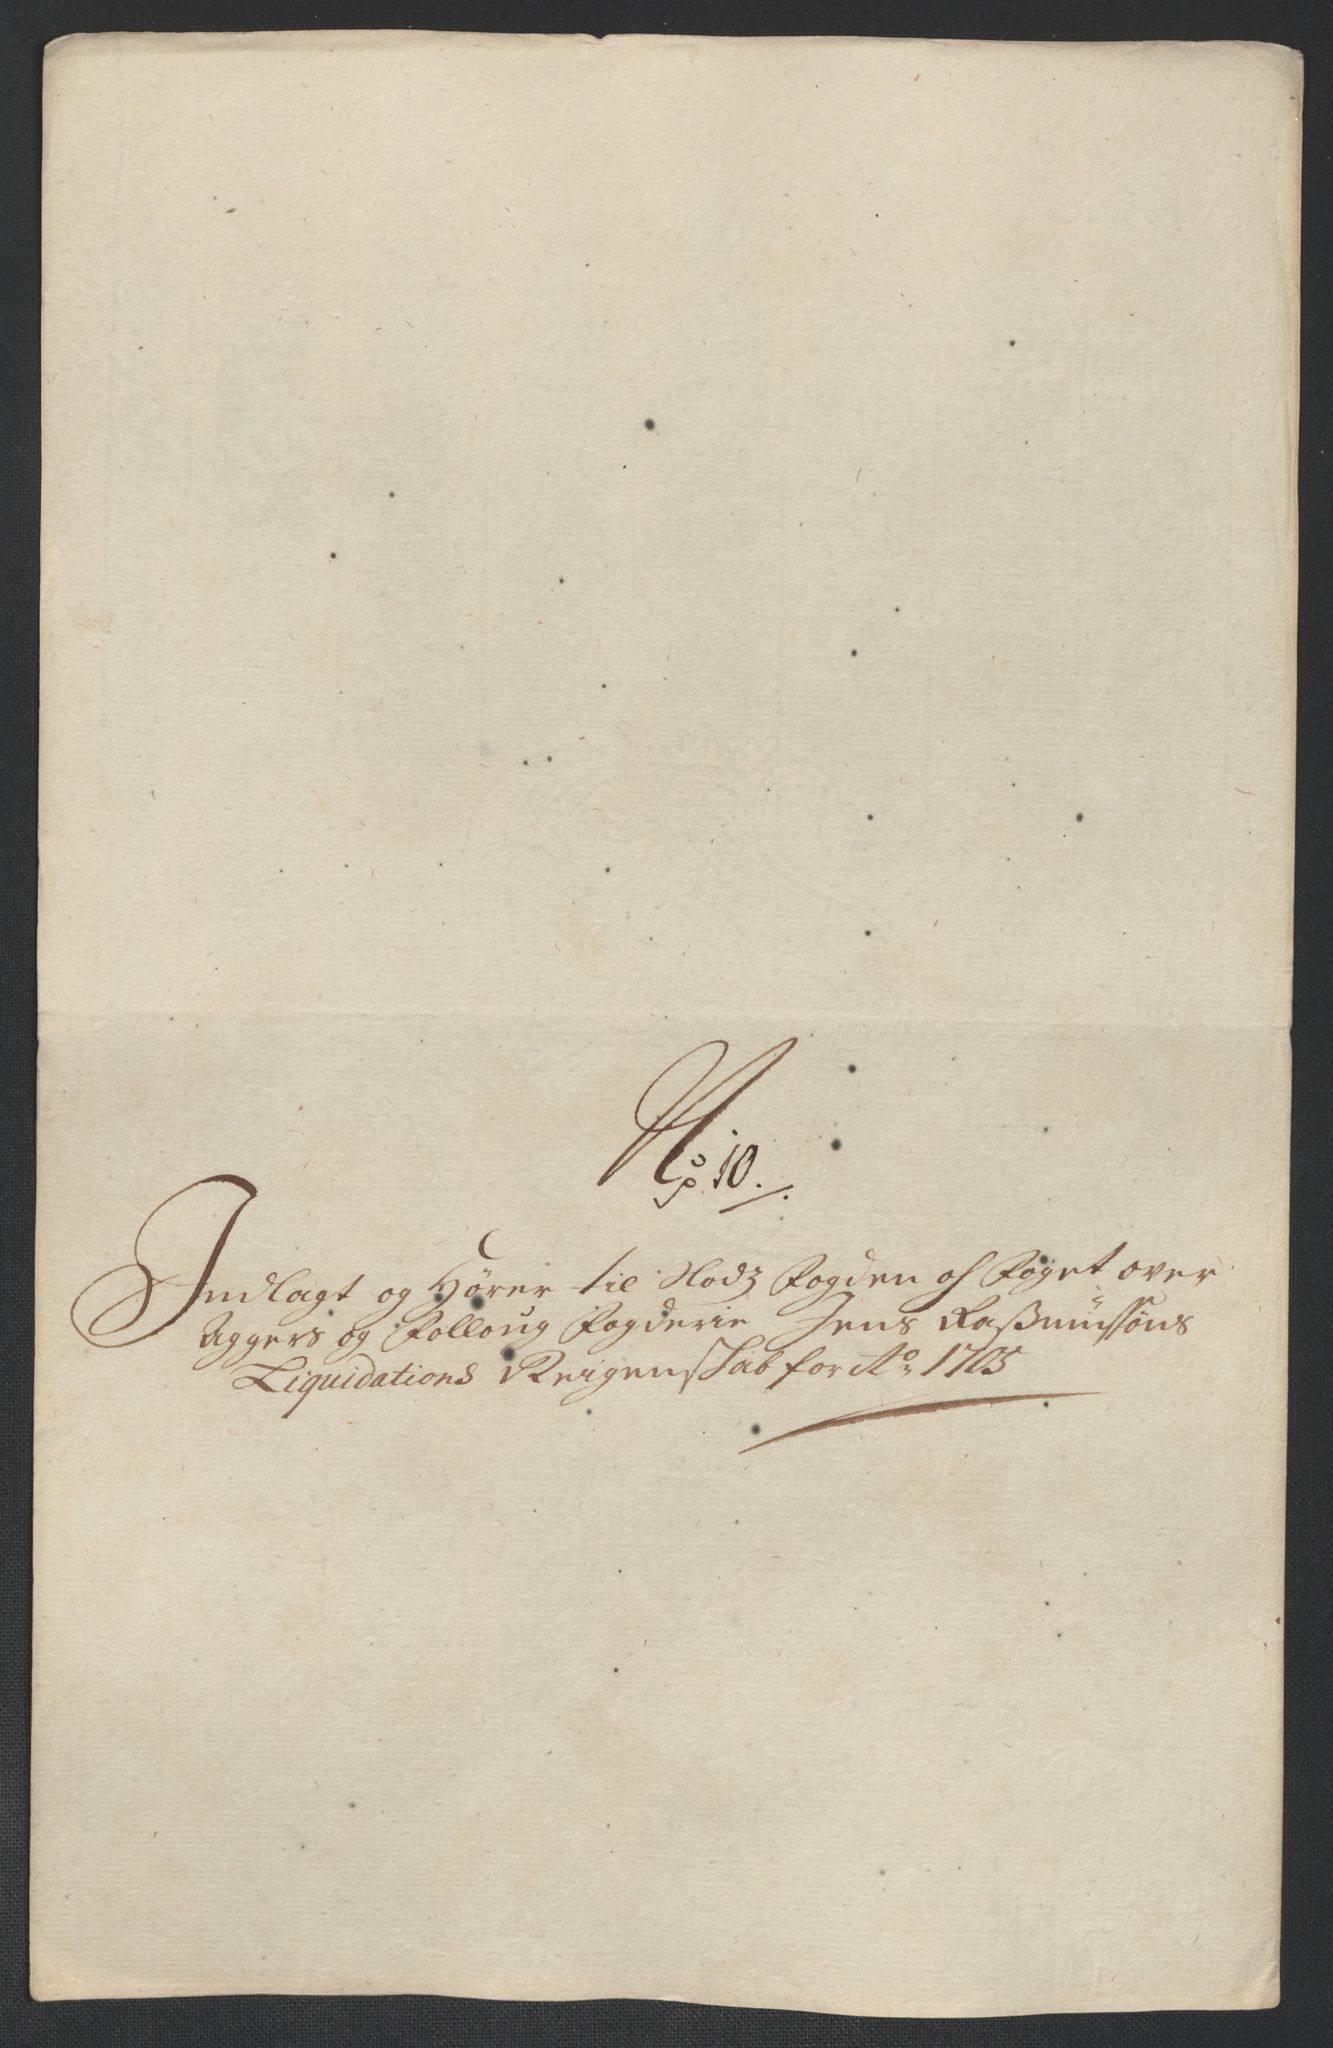 No 10.
Indlagt og Hører til Slodz Fogden og Foget over
Aggers og Folloug Fogderie Jens Raßmuſsøns
Liquidations Reigenskab for Ao 1705